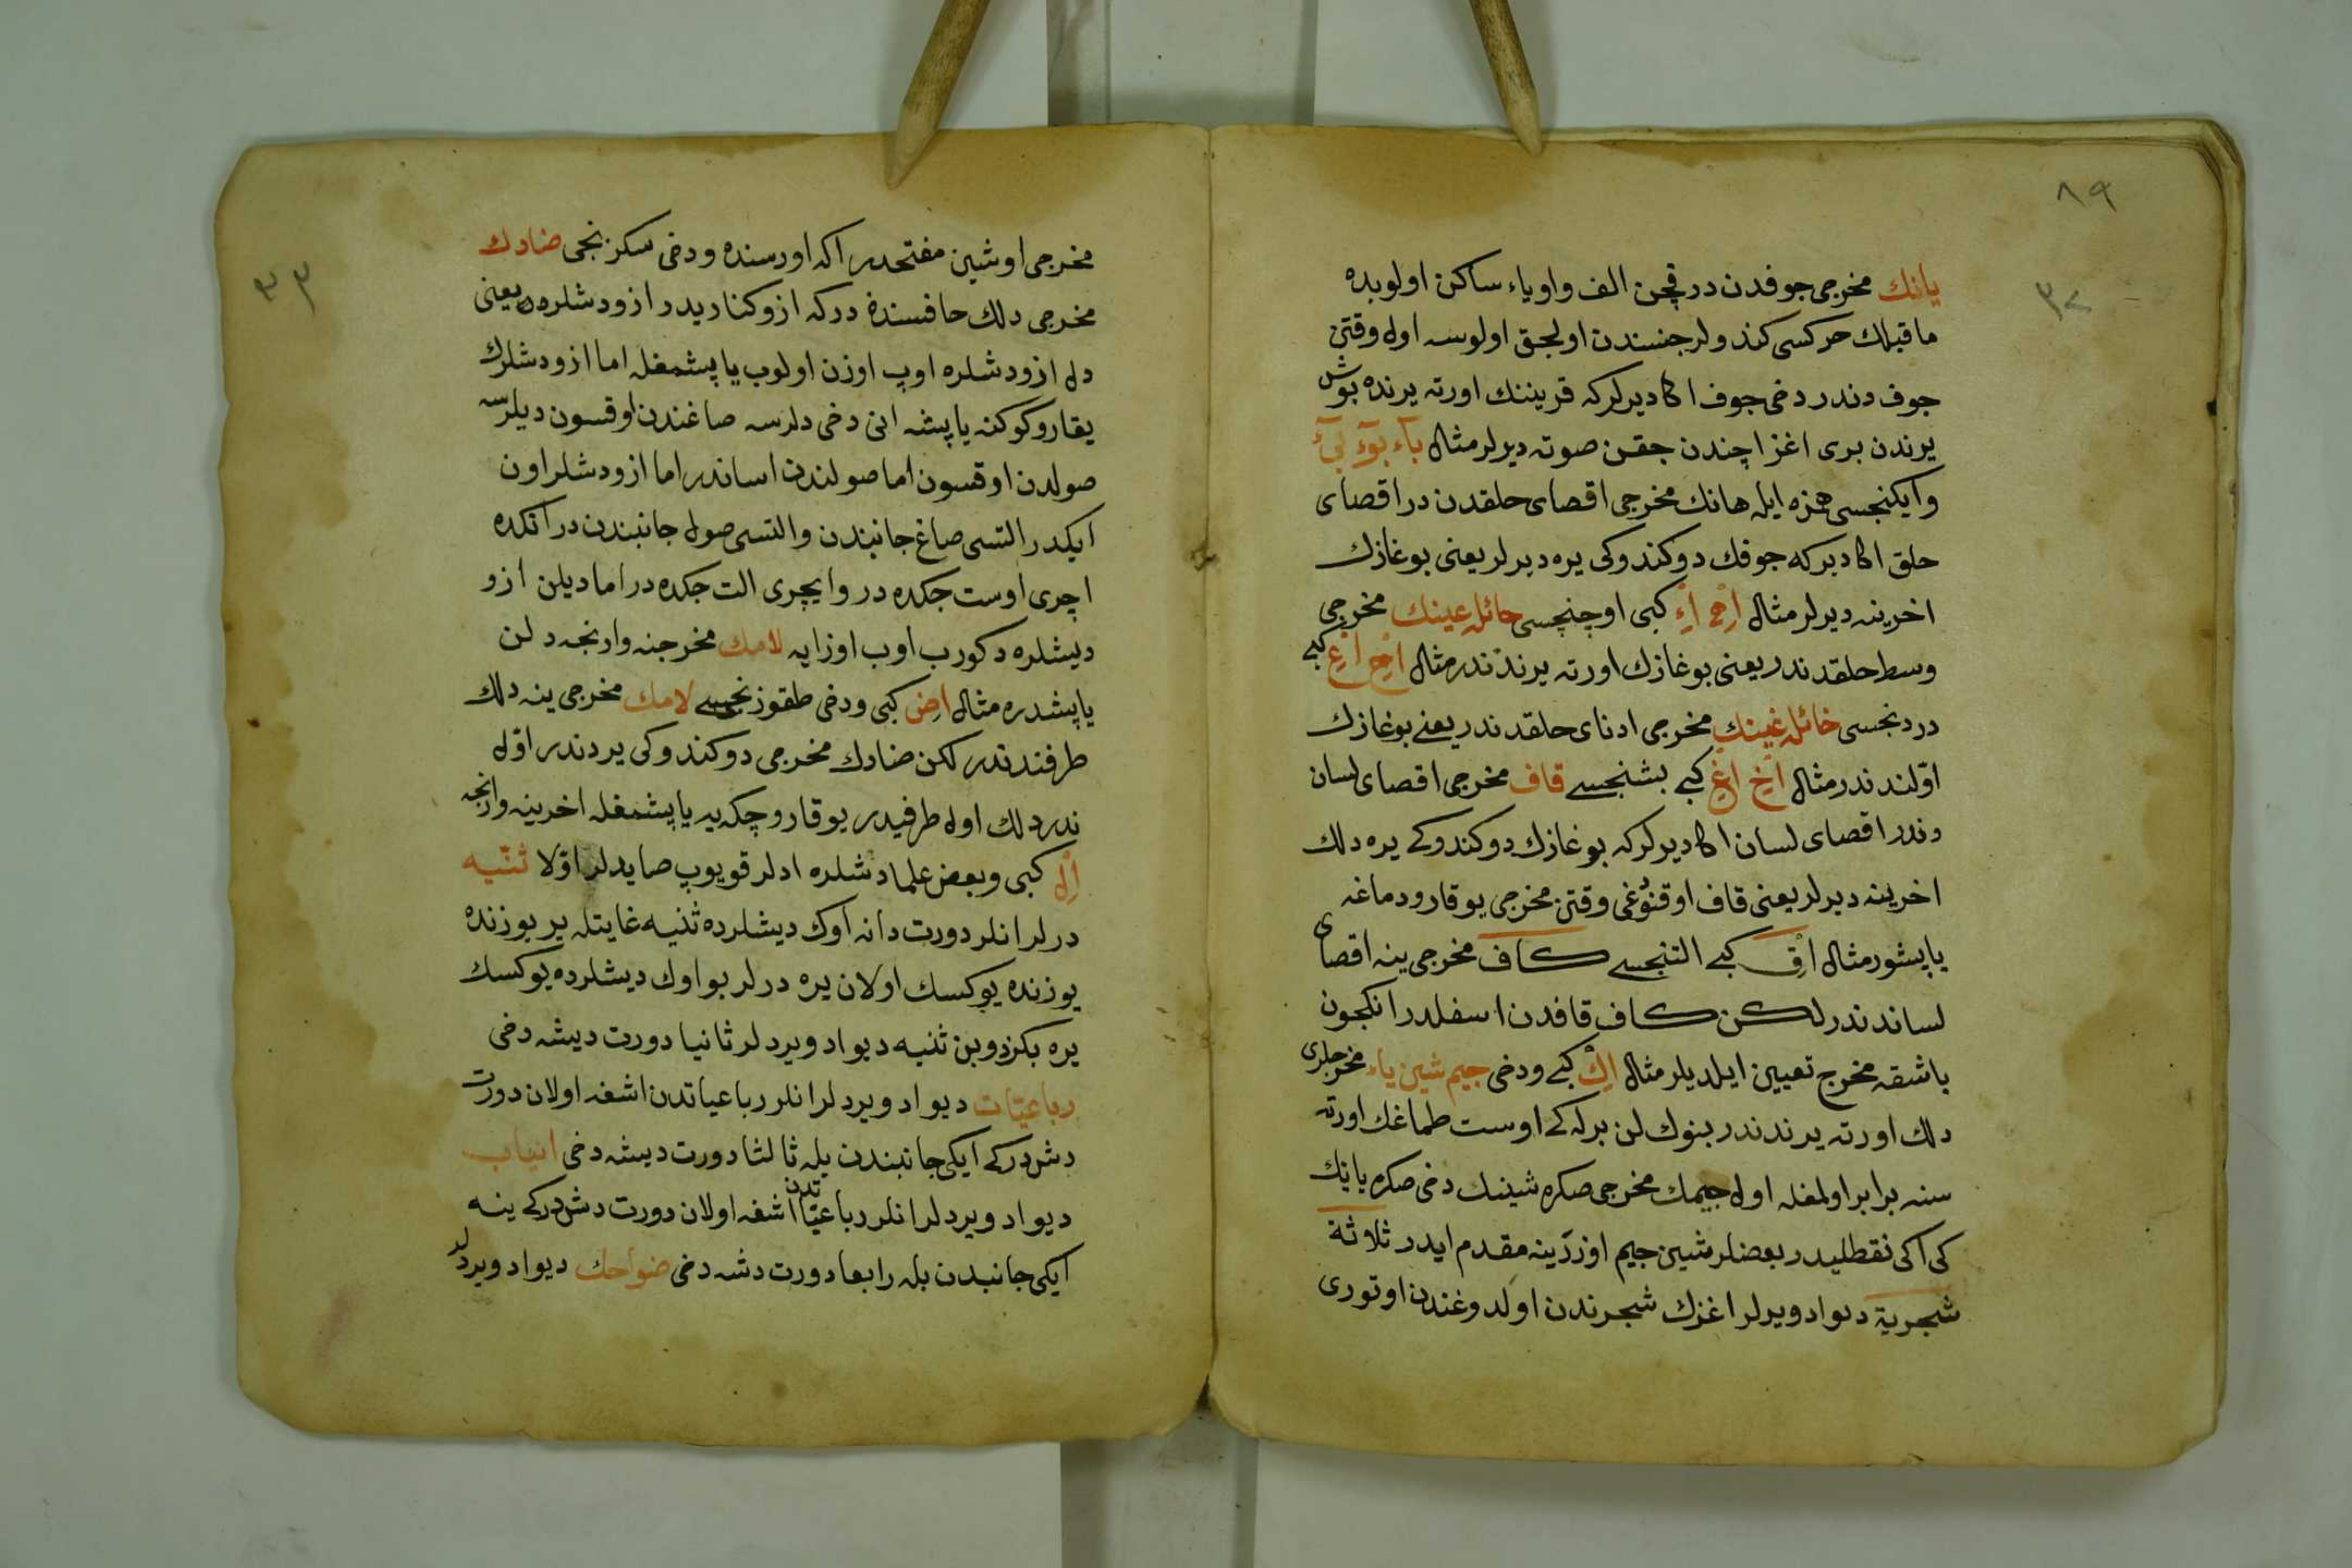 ٨٩
٣٢
يانك مخرجى جوفدن در قچن الف واو ياء ساكن اولوبده
ماقبلك حركسى كندولر جنسندن اولجق اولوسه اول وقتن
جوف دندر دخى جوف اكا ديرلركه قرينك اورته يرنده بوش
يرندن برى اغز اچندن جقن صوته ديرلر مثال بآء بوٓء بىٓء
وايكنجسى همزه ايله هانك مخرجى اقصاى حلقدن در اقصاى
حلق اكا ديركه جوفك دوكندوكى يره ديرلر يعنى بوغازك
اخرينه ديرلر مثال اِهْ اِءْ كبى اوچنچسى حائله عينك مخرجى
وسط حلقدندر يعنى بوغازك اورته يرندندر مثال اِحْ اِعْ كبى
دردنجسى خائله غينك مخرجى ادناى حلقدندر يعنى بوغازك
اوّلندندر مثال اِخْ اِغْ كبى بشنجسى قاف مخرجى اقصاى لسان
دندر اقصاى لسان اكا ديرلركه بوغازك دوكندوكى يره دلك
اخرينه ديرلر يعنى قاف اوقندوغى وقتن مخرجى يوقارو دماغه
ياپشور مثال اِقْ كبى التنجسى كاف مخرجى ينه اقصاى
لساندندر لكن كاف قافدن اسفلدر انكچون
باشقه مخرج تعيين ايلديلر مثال اِكْ كبى ودخى جيم شين ياء مخرجلرى
دلك اورته يرندندر بنوك لن برله كى اوست طماغك اورته
سنه برابر اولمغله اول جيمك مخرجى صكره شينك دخى صكره يانك
كى اكى نقطليدر بعضلر شين جيم اوزرينه مقدم ايدر ثلاثة
شجرية ديواد ويرلر اغزك شجرندن اولدوغندن اوتورى
٣٣
مخرجى اوشين مفتحدر اكه اورسنده ودخى سكزنجى ضادك
مخرجى دلك حافسنده دركه ازوكناريدر ازودشلره يعنى
دل ازودشلره اوپ اوزن اولوب ياپشمغله اما ازودشلرك
يقارو كوكنه ياپشه انى دخى دلرسه صاغندن اوقسون ديلرسه
صولدن اوقسون اما صولندن اساندر اما ازودشلر اون
ايكدر التسى صاغ جانبندن والتسى صول جانبندن در انكده
اچرى اوست جكده در وايچرى الت جكده در اما ديلن ازو
ديشلره دكورب اوب اوزايه لامك مخرجنه وارنجه دلن
ياپشدره مثال اِضْ كبى ودخى طقوزنجسى لامك مخرجى ينه دلك
طرفندندر لكن ضادك مخرجى دوكندوكى يردندر اوّل
ندر دلك اول طرفيدر يوقارو چكه يه ياپشمغله اخرينه وارنجه
اِلْ كبى وبعض علما دشلره ادلر قويوپ صايدلر اوّلا ثنيّه
درلر انلر دورت دانه اوك ديشلرده ثنيه غايتله ير يوزنده
يوزنده يوكسك اولان يره درلر بو اوك ديشلرده يوكسك
يره بكزدوبن ثنيه ديواد ويردلر ثانيا دورت ديشه دخى
رباعيّات ديواد ويردلر انلر رباعياتدن اشغه اولان دورت
دش دركى ايكى جانبندن يله ثالثا دورت ديشه دخى انياب
ديواد ويردلر انلر رباعيّاتدن اشغه اولان دورت دش دركى ينه
ايكى جانبدن بله رابعا دورت دشه دخى ضواحك ديواد ويردلر